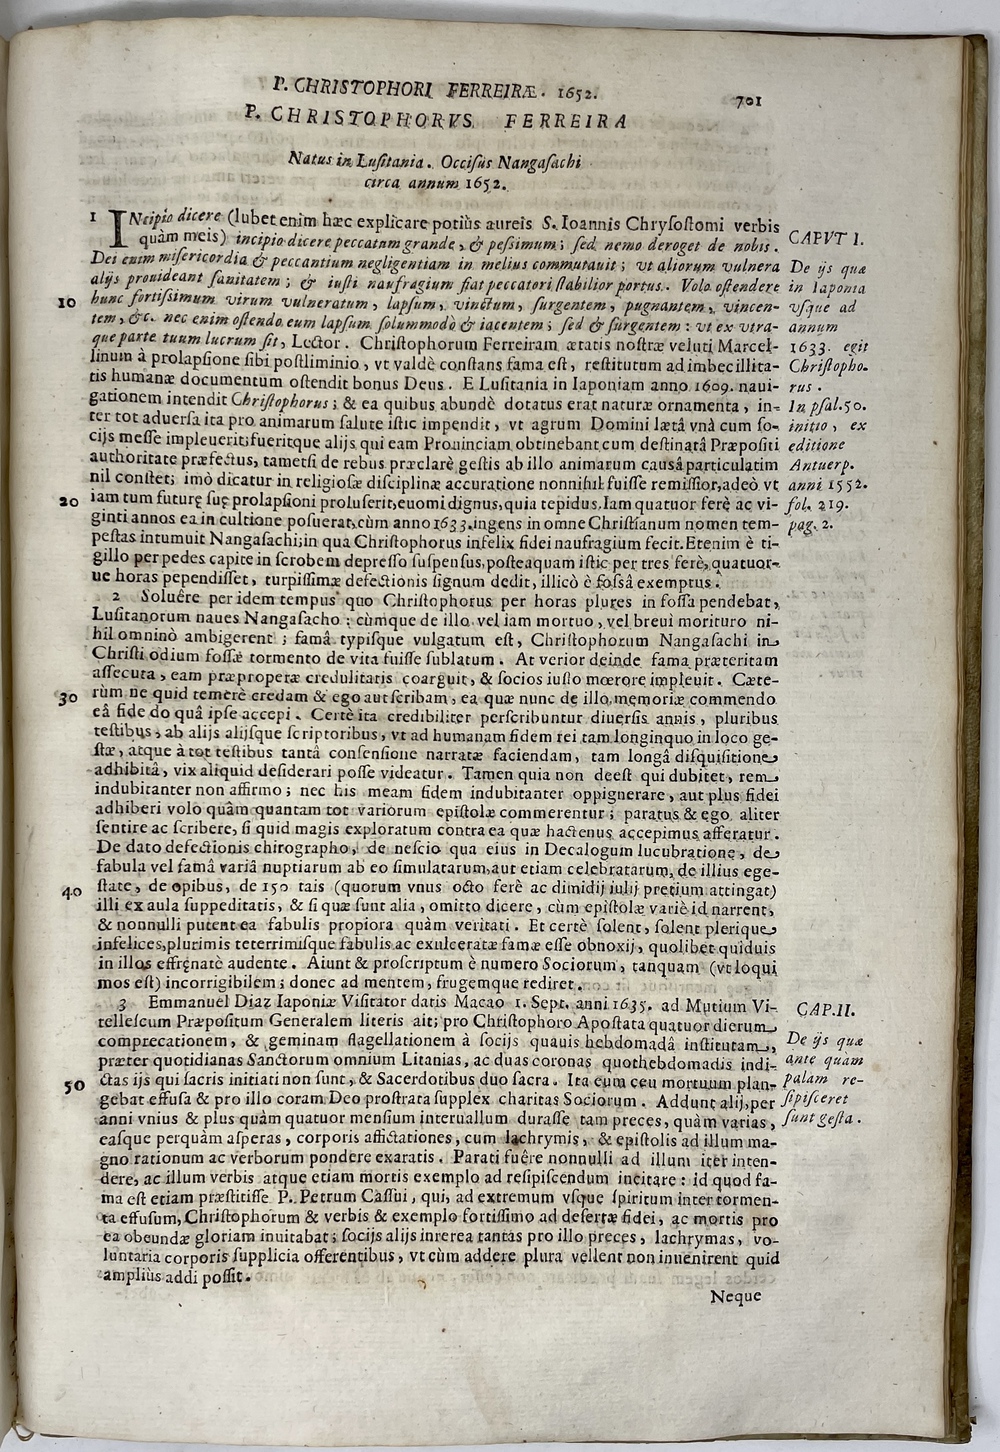 P. CHRISTOPHORI FERREIRÆ. 1652.
701
P. CHRISTOPHORVS FERREIRA
Natus in Luſitania. Occiſus Nangaſachi
circa annum 1652.
1 INcipio dicere (lubet enim hæc explicare potiùs aureis S. Ioannis Chryſoſtomi verbis
quàm meis) incipio dicere peccatum grande, & peſsimum; ſed nemo deroget de nobis.
Dei enim miſericordia & peccantium negligentiam in melius commutauit; vt aliorum vulnera
alijs prouideant ſanitatem; & iuſti naufragium fiat peccatori ſtabilior portus. Volo oſtendere
10 hunc fortiſsimum virum vulneratum, lapſum, vinctum, ſurgentem, pugnantem, vincen-
tem, &c. nec enim oſtendo eum lapſum ſolummodò & iacentem; ſed & ſurgentem: vt ex vtra-
que parte tuum lucrum ſit, Lector. Chriſtophorum Ferreiram ætatis noſtræ veluti Marcel-
linum à prolapſione ſibi poſtliminio, vt valdè conſtans fama eſt, reſtitutum ad imbecillita-
tis humanæ documentum oſtendit bonus Deus. E Luſitania in Iaponiam anno 1609. naui-
gationem intendit Chriſtophorus; & ea quibus abundè dotatus erat naturæ ornamenta, in-
ter tot aduerſa ita pro animarum ſalute iſtic impendit, vt agrum Domini lætâ vnà cum ſo-
cijs meſſe impleuerit; fueritque alijs qui eam Prouinciam obtinebant cum deſtinatâ Præpoſiti
authoritate præfectus, tametſi de rebus præclarè geſtis ab illo animarum causâ particulatim
nil conſtet; imò dicatur in religioſæ diſciplinæ accuratione nonnihil fuiſſe remiſſior, adeò vt
20 iam tum futurę ſuę prolapſioni proluſerit, euomi dignus, quia tepidus. Iam quatuor ferè ac vi-
ginti annos ea in cultione poſuerat, cùm anno 1633. ingens in omne Chriſtianum nomen tem-
peſtas intumuit Nangaſachi; in qua Chriſtophorus infelix fidei naufragium fecit. Etenim è ti-
gillo per pedes capite in ſcrobem depreſſo ſuſpenſus, poſteaquam iſtic per tres ferè, quatuor-
ue horas pependiſſet, turpiſſimæ defectionis ſignum dedit, illicò è foſsâ exemptus.
2 Soluêre per idem tempus quo Chriſtophorus per horas plures in foſſa pendebat,
Luſitanorum naues Nangaſacho: cùmque de illo vel iam mortuo, vel breui morituro ni-
hil omninò ambigerent; famâ typiſque vulgatum eſt, Chriſtophorum Nangaſachi in
Chriſti odium foſſæ tormento de vita fuiſſe ſublatum. At verior deinde fama præteritam
aſſecuta, eam præproperæ credulitatis coarguit, & ſocios iuſto mœrore impleuit. Cæte-
30 rùm ne quid temerè credam & ego aut ſcribam, ea quæ nunc de illo memoriæ commendo
eâ fide do quâ ipſe accepi. Certè ita credibiliter perſcribuntur diuerſis annis, pluribus
teſtibus, ab alijs alijſque ſcriptoribus, vt ad humanam fidem rei tam longinquo in loco ge-
ſtæ, atque à tot teſtibus tantâ conſenſione narratæ faciendam, tam longâ diſquiſitione
adhibitâ, vix aliquid deſiderari poſſe videatur. Tamen quia non deeſt qui dubitet, rem
indubitanter non affirmo; nec his meam fidem indubitanter oppignerare, aut plus fidei
adhiberi volo quàm quantam tot variorum epiſtolæ commerentur; paratus & ego aliter
ſentire ac ſcribere, ſi quid magis exploratum contra ea quæ hactenus accepimus afferatur.
De dato defectionis chirographo, de neſcio qua eius in Decalogum lucubratione, de
fabula vel famâ variâ nuptiarum ab eo ſimulatarum, aut etiam celebratarum, de illius ege-
40 ſtate, de opibus, de 150 tais (quorum vnus octo ferè ac dimidij iulij pretium attingat)
illi ex aula ſuppeditatis, & ſi quæ ſunt alia, omitto dicere, cùm epiſtolæ variè id narrent,
& nonnulli putent ea fabulis propiora quàm veritati. Et certè ſolent, ſolent plerique
infelices, plurimis teterrimiſque fabulis ac exulceratæ famæ eſſe obnoxij, quolibet quiduis
in illos effręnatè audente. Aiunt & proſcriptum è numero Sociorum, tanquam (vt loqui
mos eſt) incorrigibilem; donec ad mentem, frugemque rediret.
3 Emmanuel Diaz Iaponiæ Viſitator datis Macao 1. Sept. anni 1635. ad Mutium Vi-
telleſcum Præpoſitum Generalem literis ait; pro Chriſtophoro Apoſtata quatuor dierum
comprecationem, & geminam flagellationem à ſocijs quauis hebdomadâ inſtitutam,
præter quotidianas Sanctorum omnium Litanias, ac duas coronas quothebdomadis indi-
50 ctas ijs qui ſacris initiati non ſunt, & Sacerdotibus duo ſacra. Ita eum ceu mortuum plan-
gebat effuſa & pro illo coram Deo proſtrata ſupplex charitas Sociorum. Addunt alij, per
anni vnius & plus quàm quatuor menſium interuallum duraſſe tam preces, quàm varias,
eaſque perquàm aſperas, corporis afflictationes, cum lachrymis, & epiſtolis ad illum ma-
gno rationum ac verborum pondere exaratis. Parati fuêre nonnulli ad illum iter inten-
dere, ac illum verbis atque etiam mortis exemplo ad reſipiſcendum incitare: id quod fa-
ma eſt etiam præſtitiſſe P. Petrum Caſſui, qui, ad extremum vſque ſpiritum inter tormen-
ta effuſum, Chriſtophorum & verbis & exemplo fortiſſimo ad deſertæ fidei, ac mortis pro
ea obeundæ gloriam inuitabat; ſocijs alijs interea tantas pro illo preces, lachrymas, vo-
luntaria corporis ſupplicia offerentibus, vt cùm addere plura vellent non inuenirent quid
ampliùs addi poſſit.
Neque
CAPVT I.
De ijs quæ
in Iaponia
vſque ad
annum
1633. egit
Chriſtopho-
rus.
In pſal. 50.
initio, ex
editione
Antuerp.
anni 1552.
fol. 219.
pag. 2.
CAP. II.
De ijs quæ
ante quàm
palam re-
ſipiſceret
ſunt geſta.